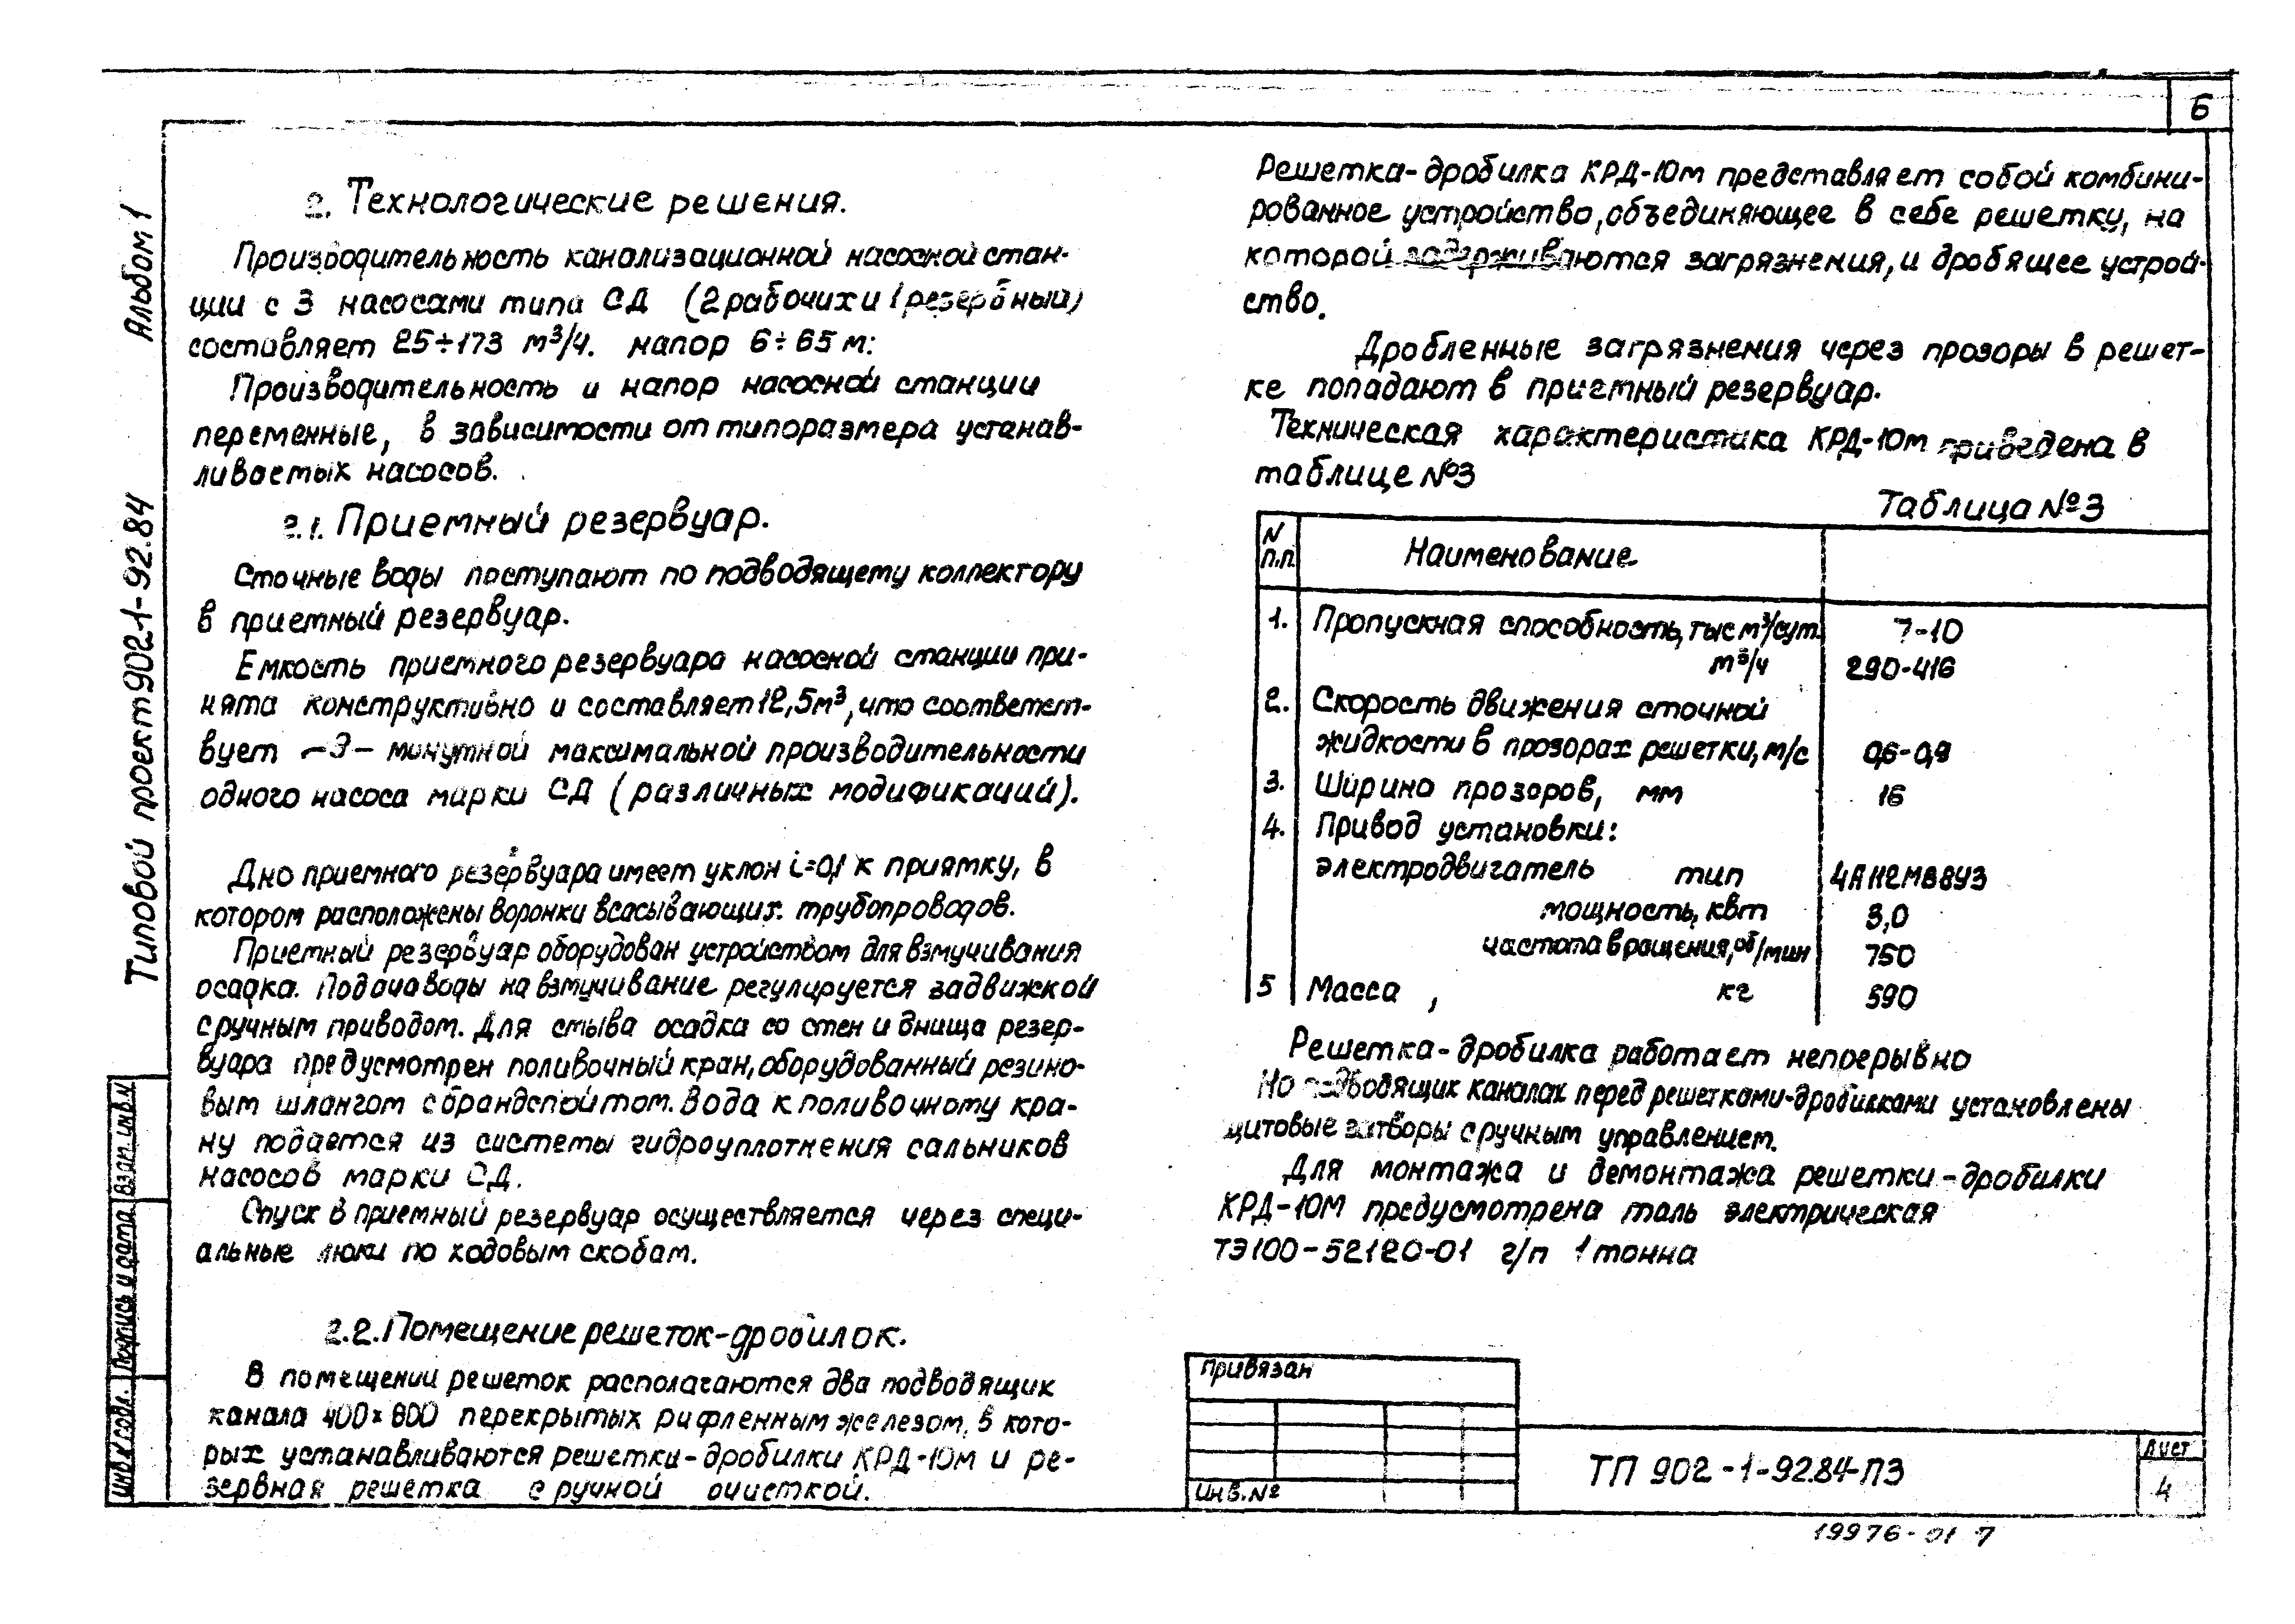 6
Альбом 1
Типовой проект 902-1-92.84
Взап. инв.N
Подпись и дата
Инв.N подл.
2. Технологические решения.
Производительность канализационной насосной стан-
ции с 3 насосами типа СД (2 рабочих и 1 резервный)
составляет 25÷173 м³/ч. напор 6÷65 м:
Производительность и напор насосной станции
переменные, в зависимости от типоразмера устанав-
ливаемых насосов.
2.1. Приемный резервуар.
Сточные воды поступают по подводящему коллектору
в приемный резервуар.
Емкость приемного резервуара насосной станции при-
нята конструктивно и составляет 12,5м³, что соответст-
вует ~3- минутной максимальной производительности
одного насоса марки СД (различных модификаций).
Дно приемного резервуара имеет уклон i=0,1 к приямку, в
котором расположены воронки всасывающих трубопроводов.
Приемный резервуар оборудован устройством для взмучивания
осадка. Подача воды на взмучивание регулируется задвижкой
с ручным приводом. Для смыва осадка со стен и днища резер-
вуара предусмотрен поливочный кран, оборудованный резино-
вым шлангом с брандспойтом. Вода к поливочному кра-
ну подается из системы гидроуплотнения сальников
насосов марки СД.
Спуск в приемный резервуар осуществляется через специ-
альные люки по ходовым скобам.
2.2. Помещение решеток-дробилок.
В помещении решеток располагаются два подводящих
канала 400×800 перекрытых рифленным железом, в кото-
рых устанавливаются решетки-дробилки КРД-10м и ре-
зервная решетка с ручной очисткой.
Решетка-дробилка КРД-10м представляет собой комбини-
рованное устройство, объединяющее в себе решетку, на
которой задерживаются загрязнения, и дробящее устрой-
ство.
Дробленные загрязнения через прозоры в решет-
ке попадают в приемный резервуар.
Техническая характеристика КРД-10м приведена в
таблице №3
Таблица №3
N п.п. Наименование
1. Пропускная способность, тыс м³/сут. 7-10
м³/ч 290-416
2. Скорость движения сточной
жидкости в прозорах решетки, м/с 0,6-0,9
3. Ширина прозоров, мм 16
4. Привод установки:
электродвигатель тип 4А112МВ8У3
мощность, квт 3,0
частота вращения, об/мин 750
5 Масса , кг 590
Решетка-дробилка работает непрерывно
На подводящих каналах перед решетками-дробилками установлены
щитовые затворы с ручным управлением.
Для монтажа и демонтажа решетки-дробилки
КРД-10М предусмотрена таль электрическая
ТЭ100-52120-01 г/п 1 тонна
Привязан
Инв.№
ТП 902-1-92.84-ПЗ
Лист
4
19976-01 7